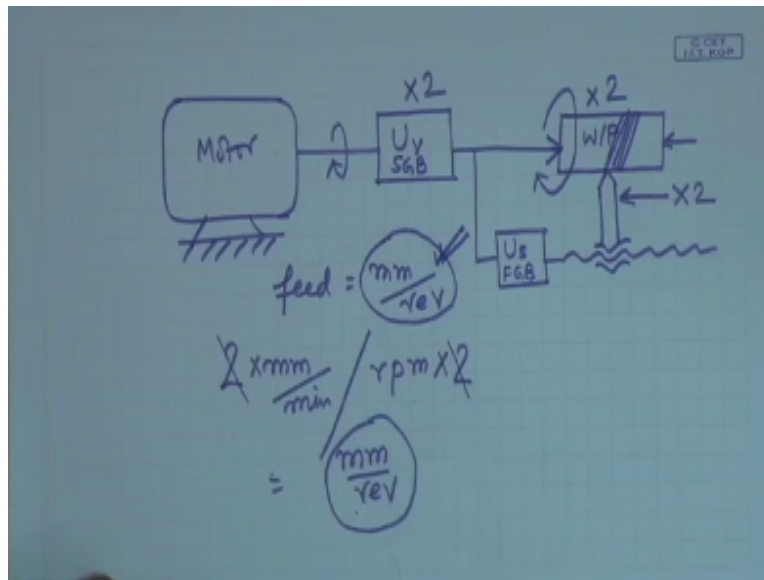 © CET
I.I.T. KGP
x2
x2
Motor
Uv
SGB
W/P
x2
Us
FGB
feed = mm/rev
2 x mm/min / rpm x 2
= mm/rev